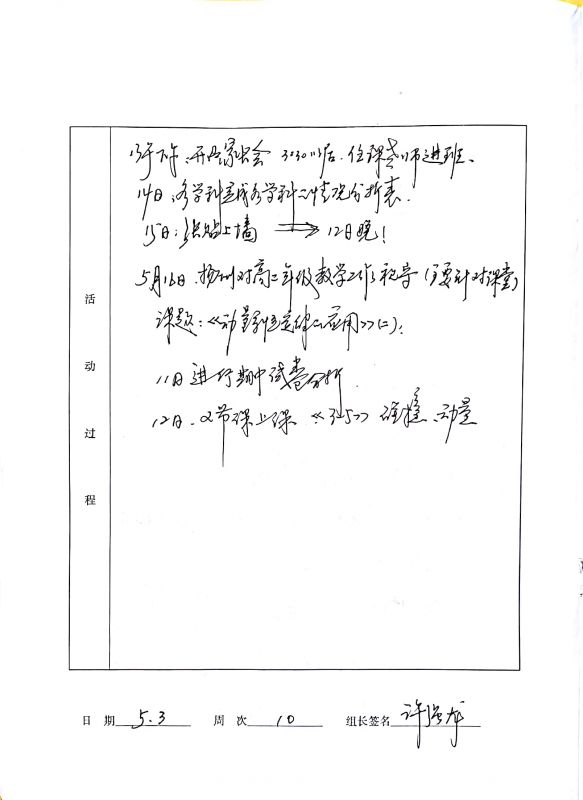 13号下午:开高二家长会 3:30以后.任课老师进班、
14日:各学科完成各学科的情况分析表.
15日:张贴上墙 ⟹ 12日晚!
5月16日.扬州对高二年级教学工作视导(主要针对课堂)
课题:《动量守恒定律的应用》(二);
11日进行期中试卷分析.
12日.2节课上课 《3-5》 碰撞、动量
活动过程
日 期 5.3 周 次 10 组长签名 许强龙